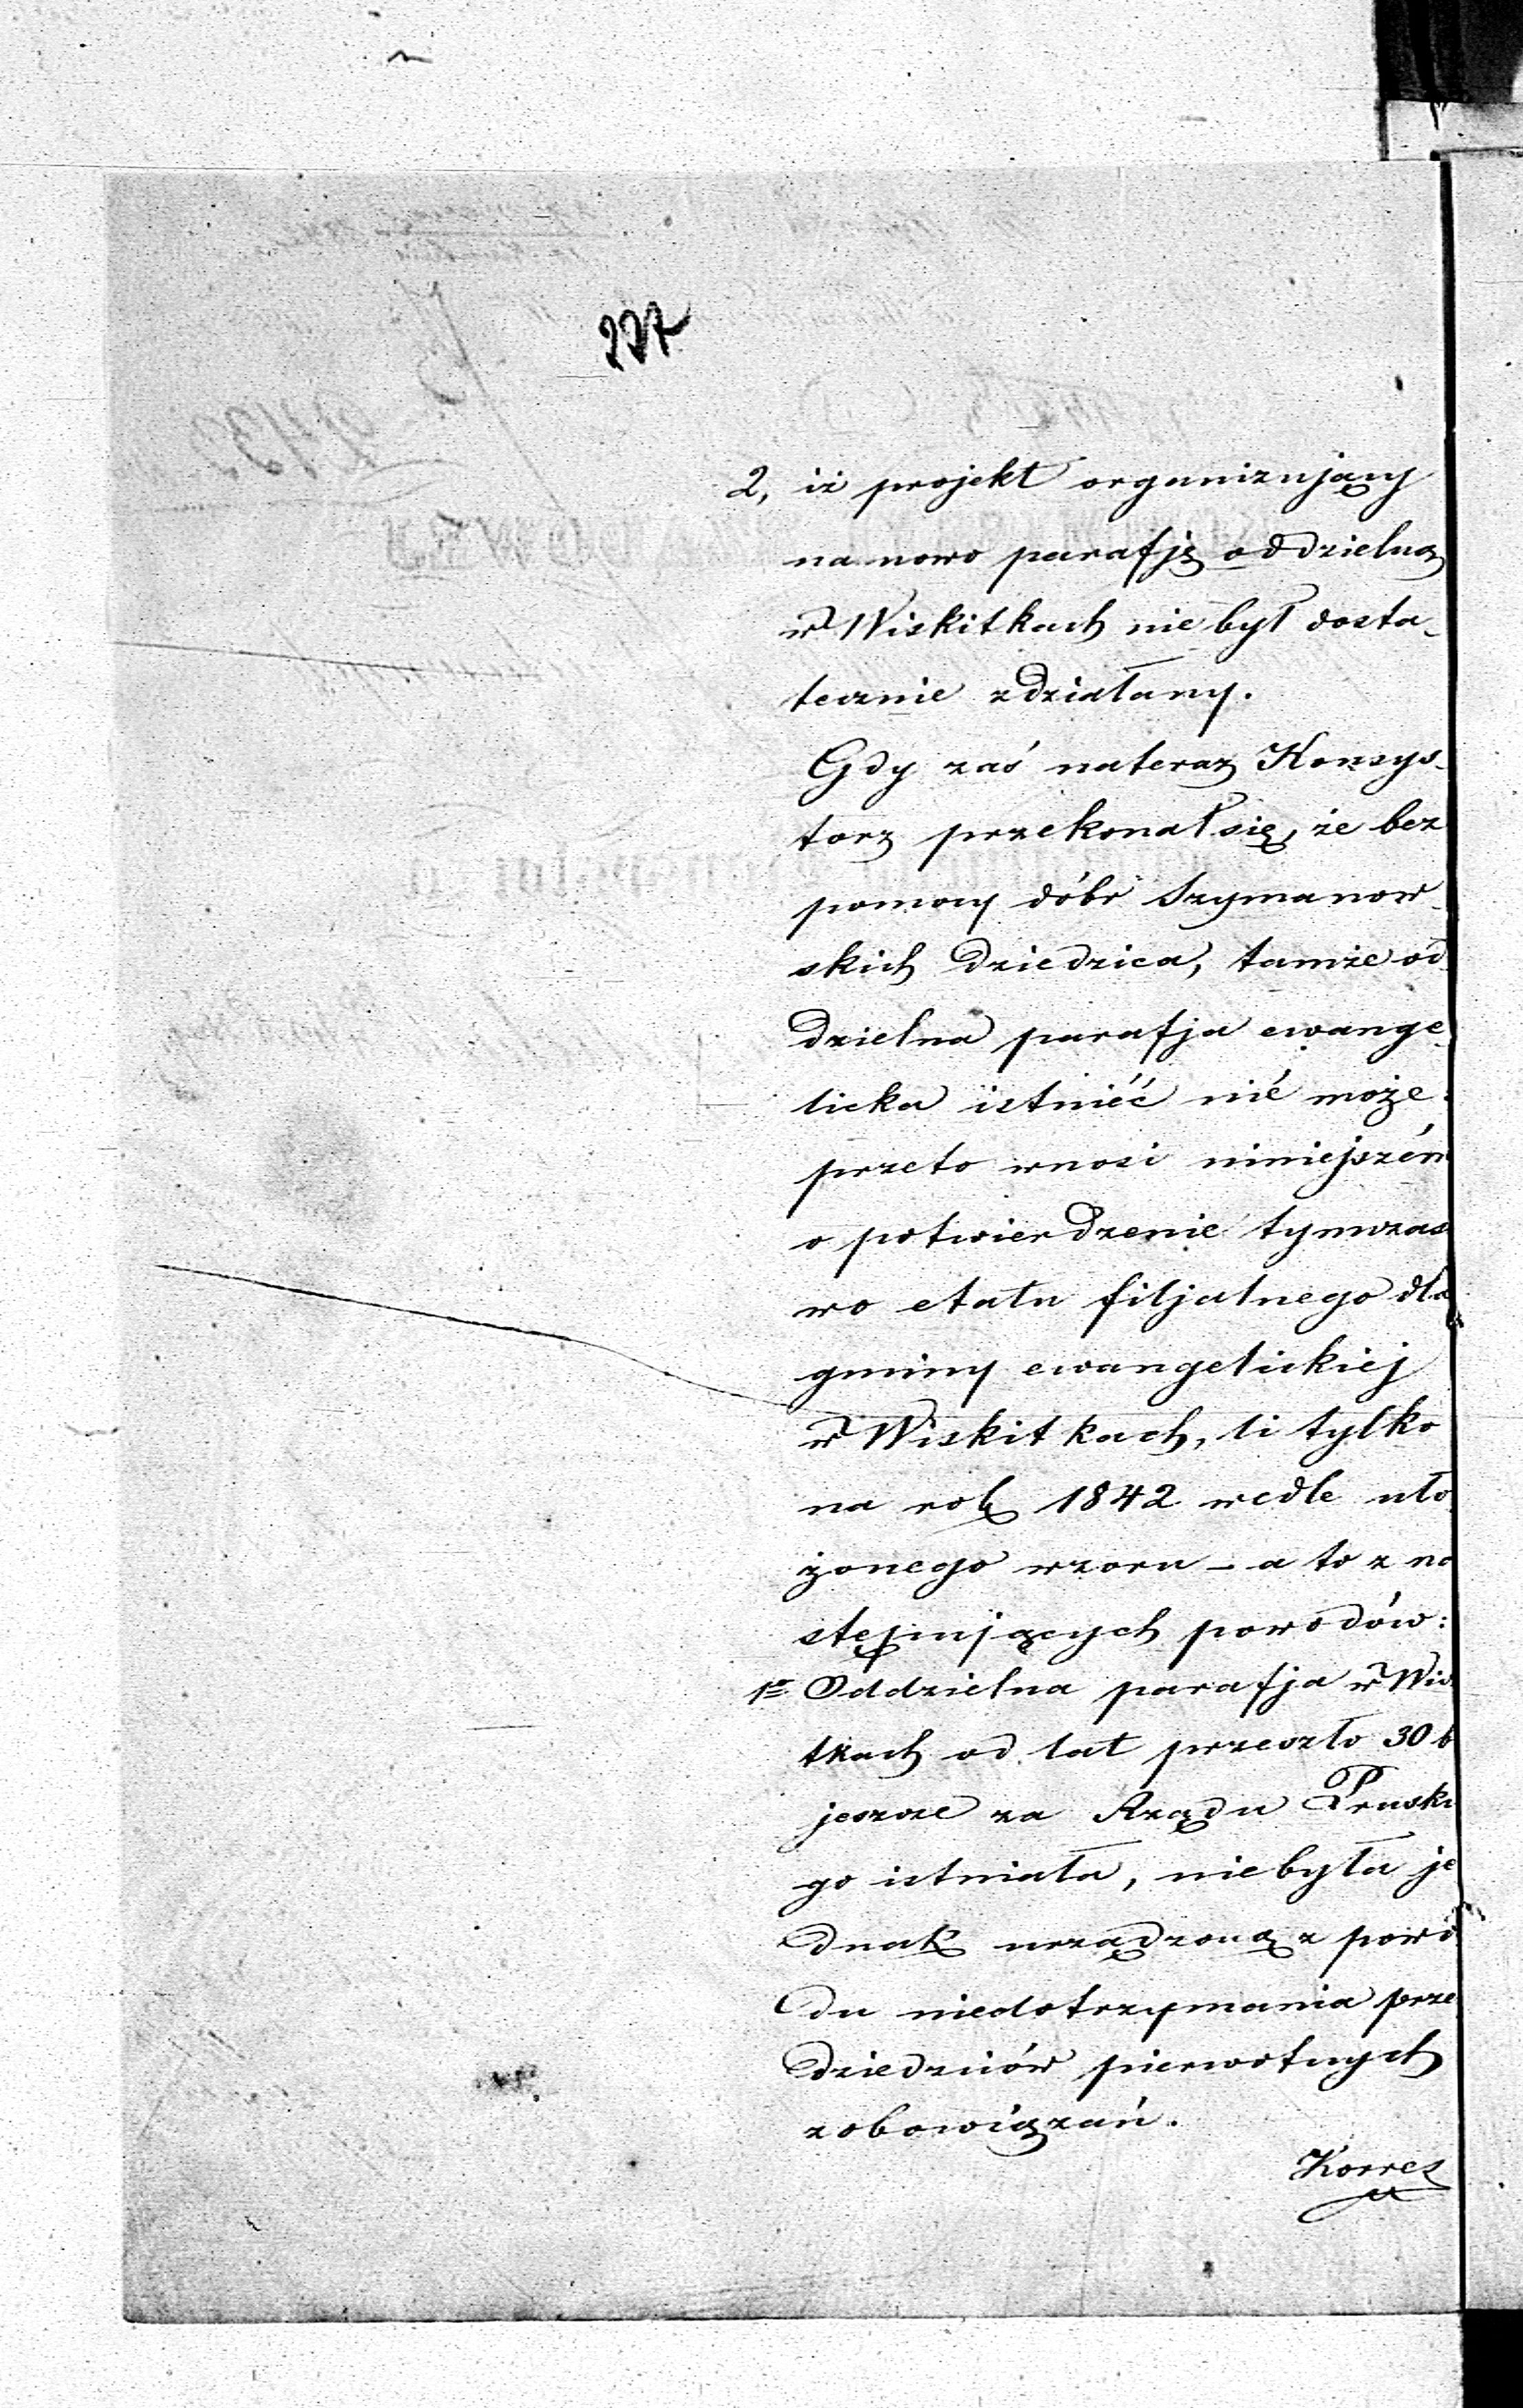 227
2, iż projekt organizujący
na nowo parafję oddzielną
w Wiskitkach nie był dosta-
tecznie zdziałany.
Gdy zaś nateraz Konsys-
torz przekonał się, że bez
pomocy dóbr Szymanow-
skich dziedzica, tamże od-
dzielna parafja ewange-
licka istnieć nié może:
przeto wnosi niniejszém
o potwierdzenie tymczas
wo etatu filjalnego dla
gminy ewangelickiej
w Wiskitkach, li tylko
na rok 1842 wedle uło-
żonego wzoru – a to z na
stępujących powodów:
1º Oddzielna parafja w Wis
tkach od lat przeszło 30 b
jeszcze za Rządu Pruskie
go istniała, nie była je
dnak urządzoną z powo
du niedotrzymania prze
dziedziców pierwotnych
zobowiązań.